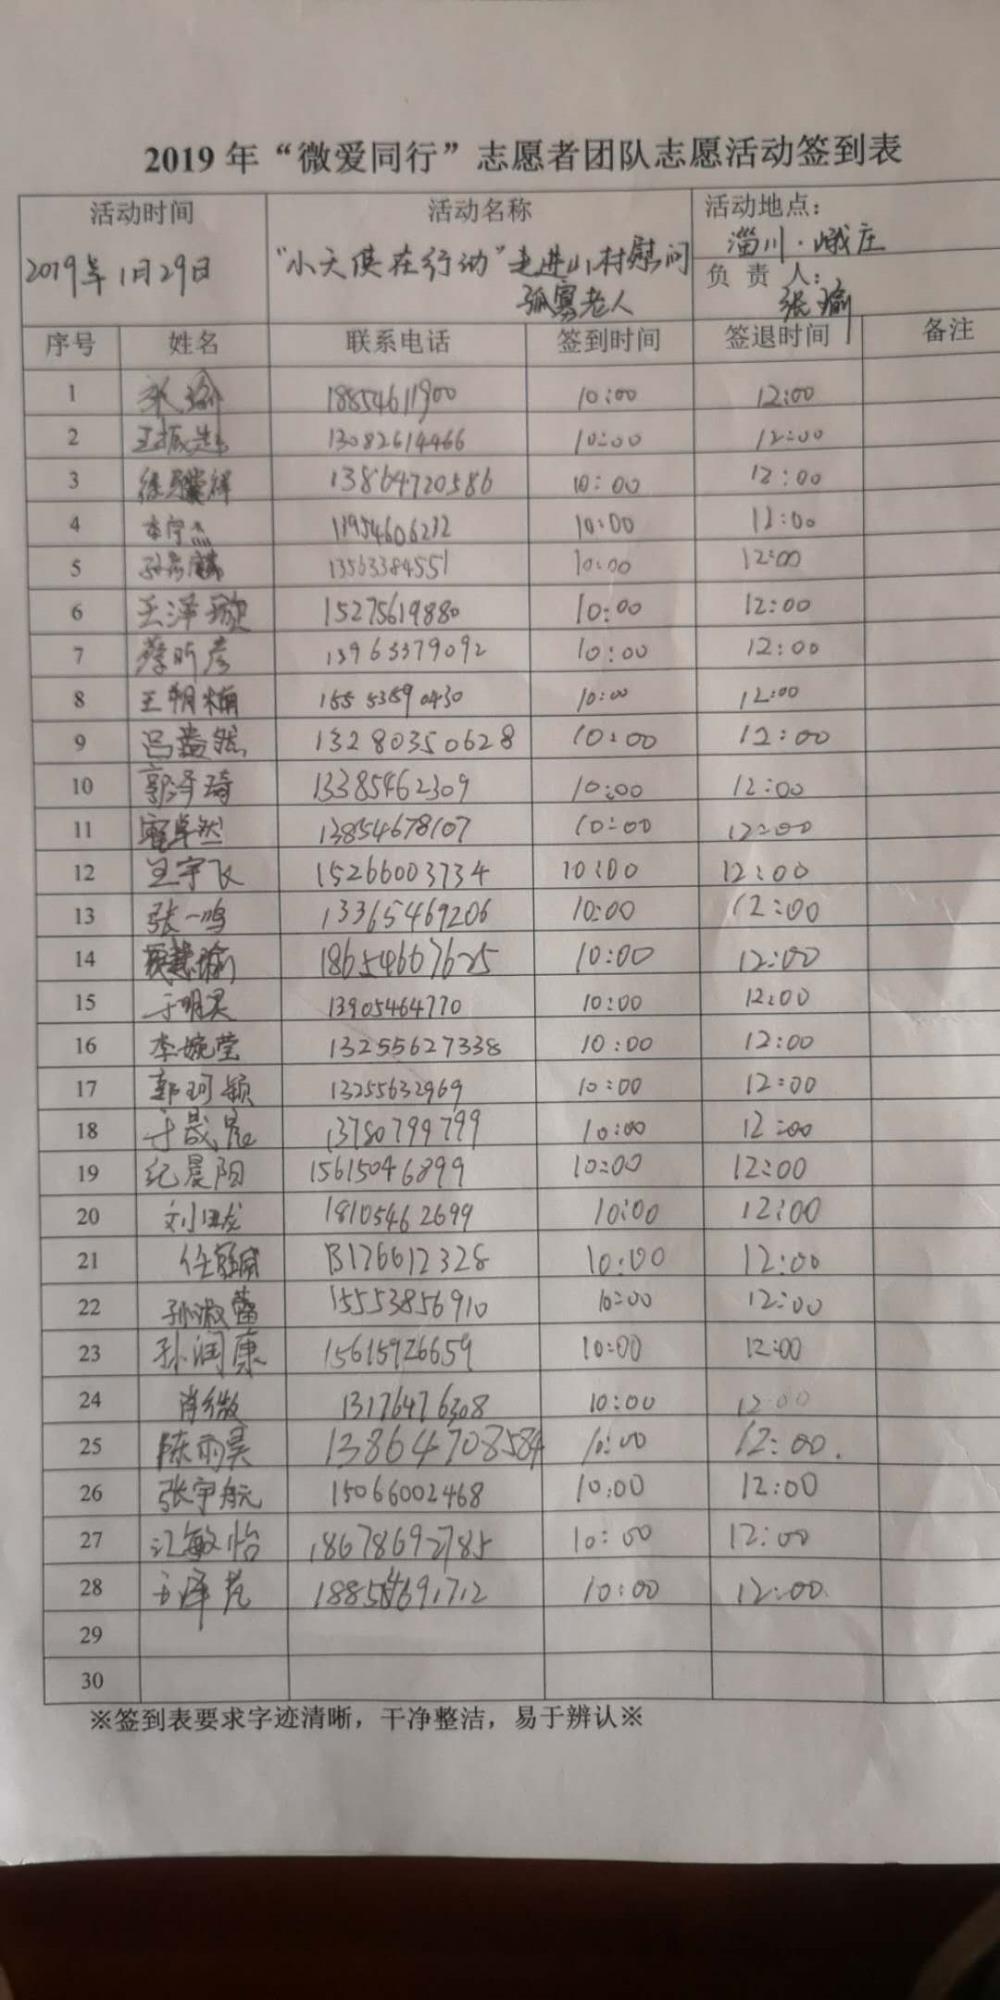 2019年“微爱同行”志愿者团队志愿活动签到表
活动时间 活动名称 活动地点：
淄川·峨庄
2019年1月29日 “小天使在行动”走进山村慰问
孤寡老人
负 责 人：
张瑜
序号 姓名 联系电话 签到时间 签退时间 备注
1 张瑜 18854611900 10:00 12:00
2 13082614466 10:00 12:00
3 13864720586 10:00 12:00
4 10:00
5 13563384551 10:00 12:00
6 王泽璇 15275619880 10:00 12:00
7 蔡昕彦 13963379092 10:00 12:00
8 王朝楠 10:00 12:00
9 吕蕴然 13280350628 10:00 12:00
10 郭泽琦 13385462309 10:00 12:00
11 卓然 13854678107 10:00 12:00
12 王宇飞 15266003734 10:00 12:00
13 张一鸣 13365469206 10:00 12:00
14 18654667625 10:00 12:00
15 于明昊 13905464770 10:00 12:00
16 李婉莹 13255627338 10:00 12:00
17 郭珂颖 13255632969 10:00 12:00
18 于晟 13780799799 10:00 12:00
19 纪晨阳 15615046899 10:00 12:00
20 18105462699 10:00 12:00
21 任 13176612328 10:00 12:00
22 孙淑蕾 15553856910 10:00 12:00
23 孙润康 15615926659 10:00 12:00
24 肖微 13176476308 10:00 12:00
25 陈雨昊 13864708584 10:00 12:00.
26 张宇航 15066002468 10:00 12:00
27 江敏怡 18678692785 10:00 12:00
28 10:00 12:00.
29
30
※签到表要求字迹清晰，干净整洁，易于辨认※